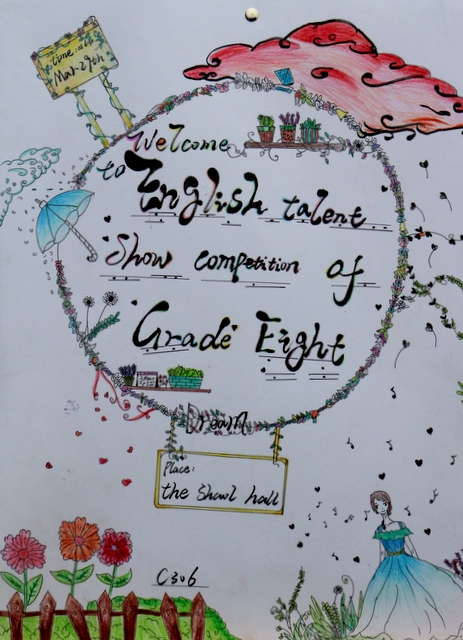 time:
Mar. 29th
Welcome
to English talent
Show competition of
Grade Eight
Dream
Place:
the Showl hall
C306